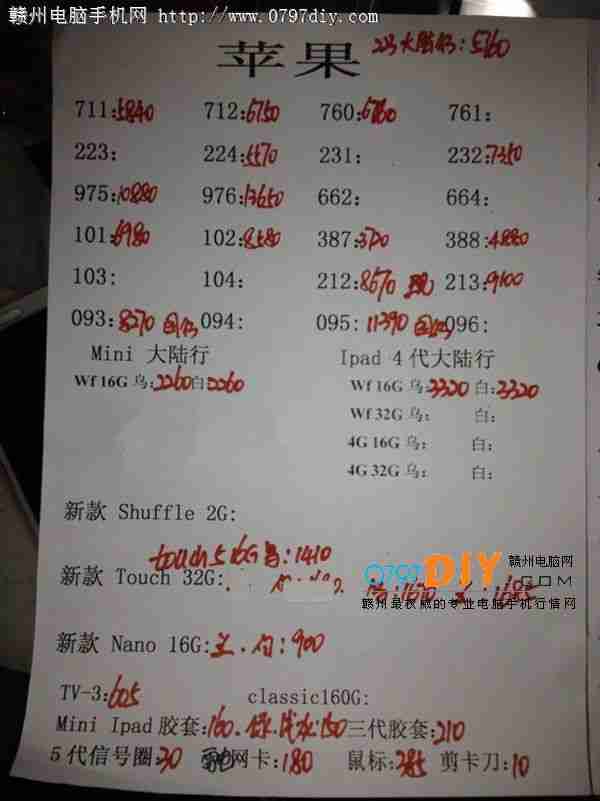 赣州电脑手机网 http://www.0797diy.com/
苹果
711:5840 712:6750 760:6760 761:
223: 224:5570 231: 232:7350
975:10880 976:13650 662: 664:
101:6980 102:8580 387:3720 388:4880
103: 104: 212:8670 现 213:9100
093:8270 094: 095:11390 096:
Mini 大陆行 Ipad 4代大陆行
Wf 16G 乌:2260 白:2260 Wf 16G 乌:3320 白:3320
Wf 32G 乌: 白:
4G 16G 乌: 白:
4G 32G 乌: 白:
新款 Shuffle 2G:
touch 5 16G 乌:1410
新款 Touch 32G:
0797DIY.COM 赣州电脑网
赣州最权威的专业电脑手机行情网
新款 Nano 16G: 兰.白:900
TV-3:605 classic160G:
Mini Ipad胶套:160. 150 三代胶套:210
5代信号圈:30 网卡:180 鼠标:385 剪卡刀:10